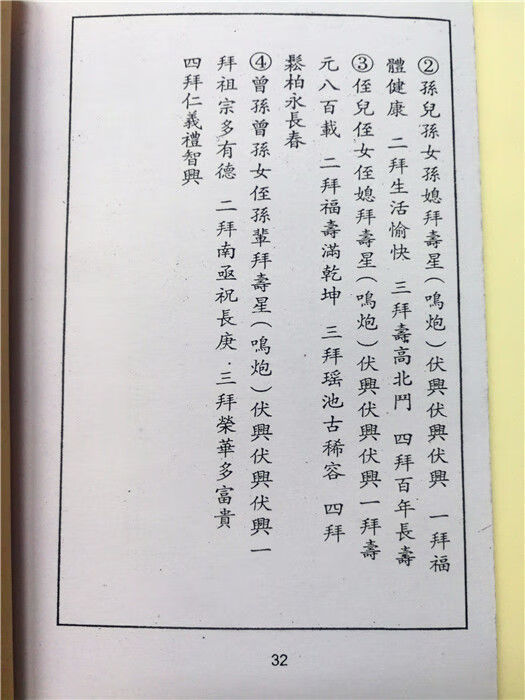 ②孫兒孫女孫媳拜壽星(鳴炮)伏興伏興伏興 一拜福
體健康 二拜生活愉快 三拜壽高北鬥 四拜百年長壽
③侄兒侄女侄媳拜壽星(鳴炮)伏興伏興伏興一拜壽
元八百載 二拜福壽滿乾坤 三拜瑶池古稀容 四拜
鬆柏永長春
④曾孫曾孫女侄孫輩拜壽星(鳴炮)伏興伏興伏興一
拜祖宗多有德 二拜南亟祝長庚.三拜榮華多富貴
四拜仁義禮智興
32